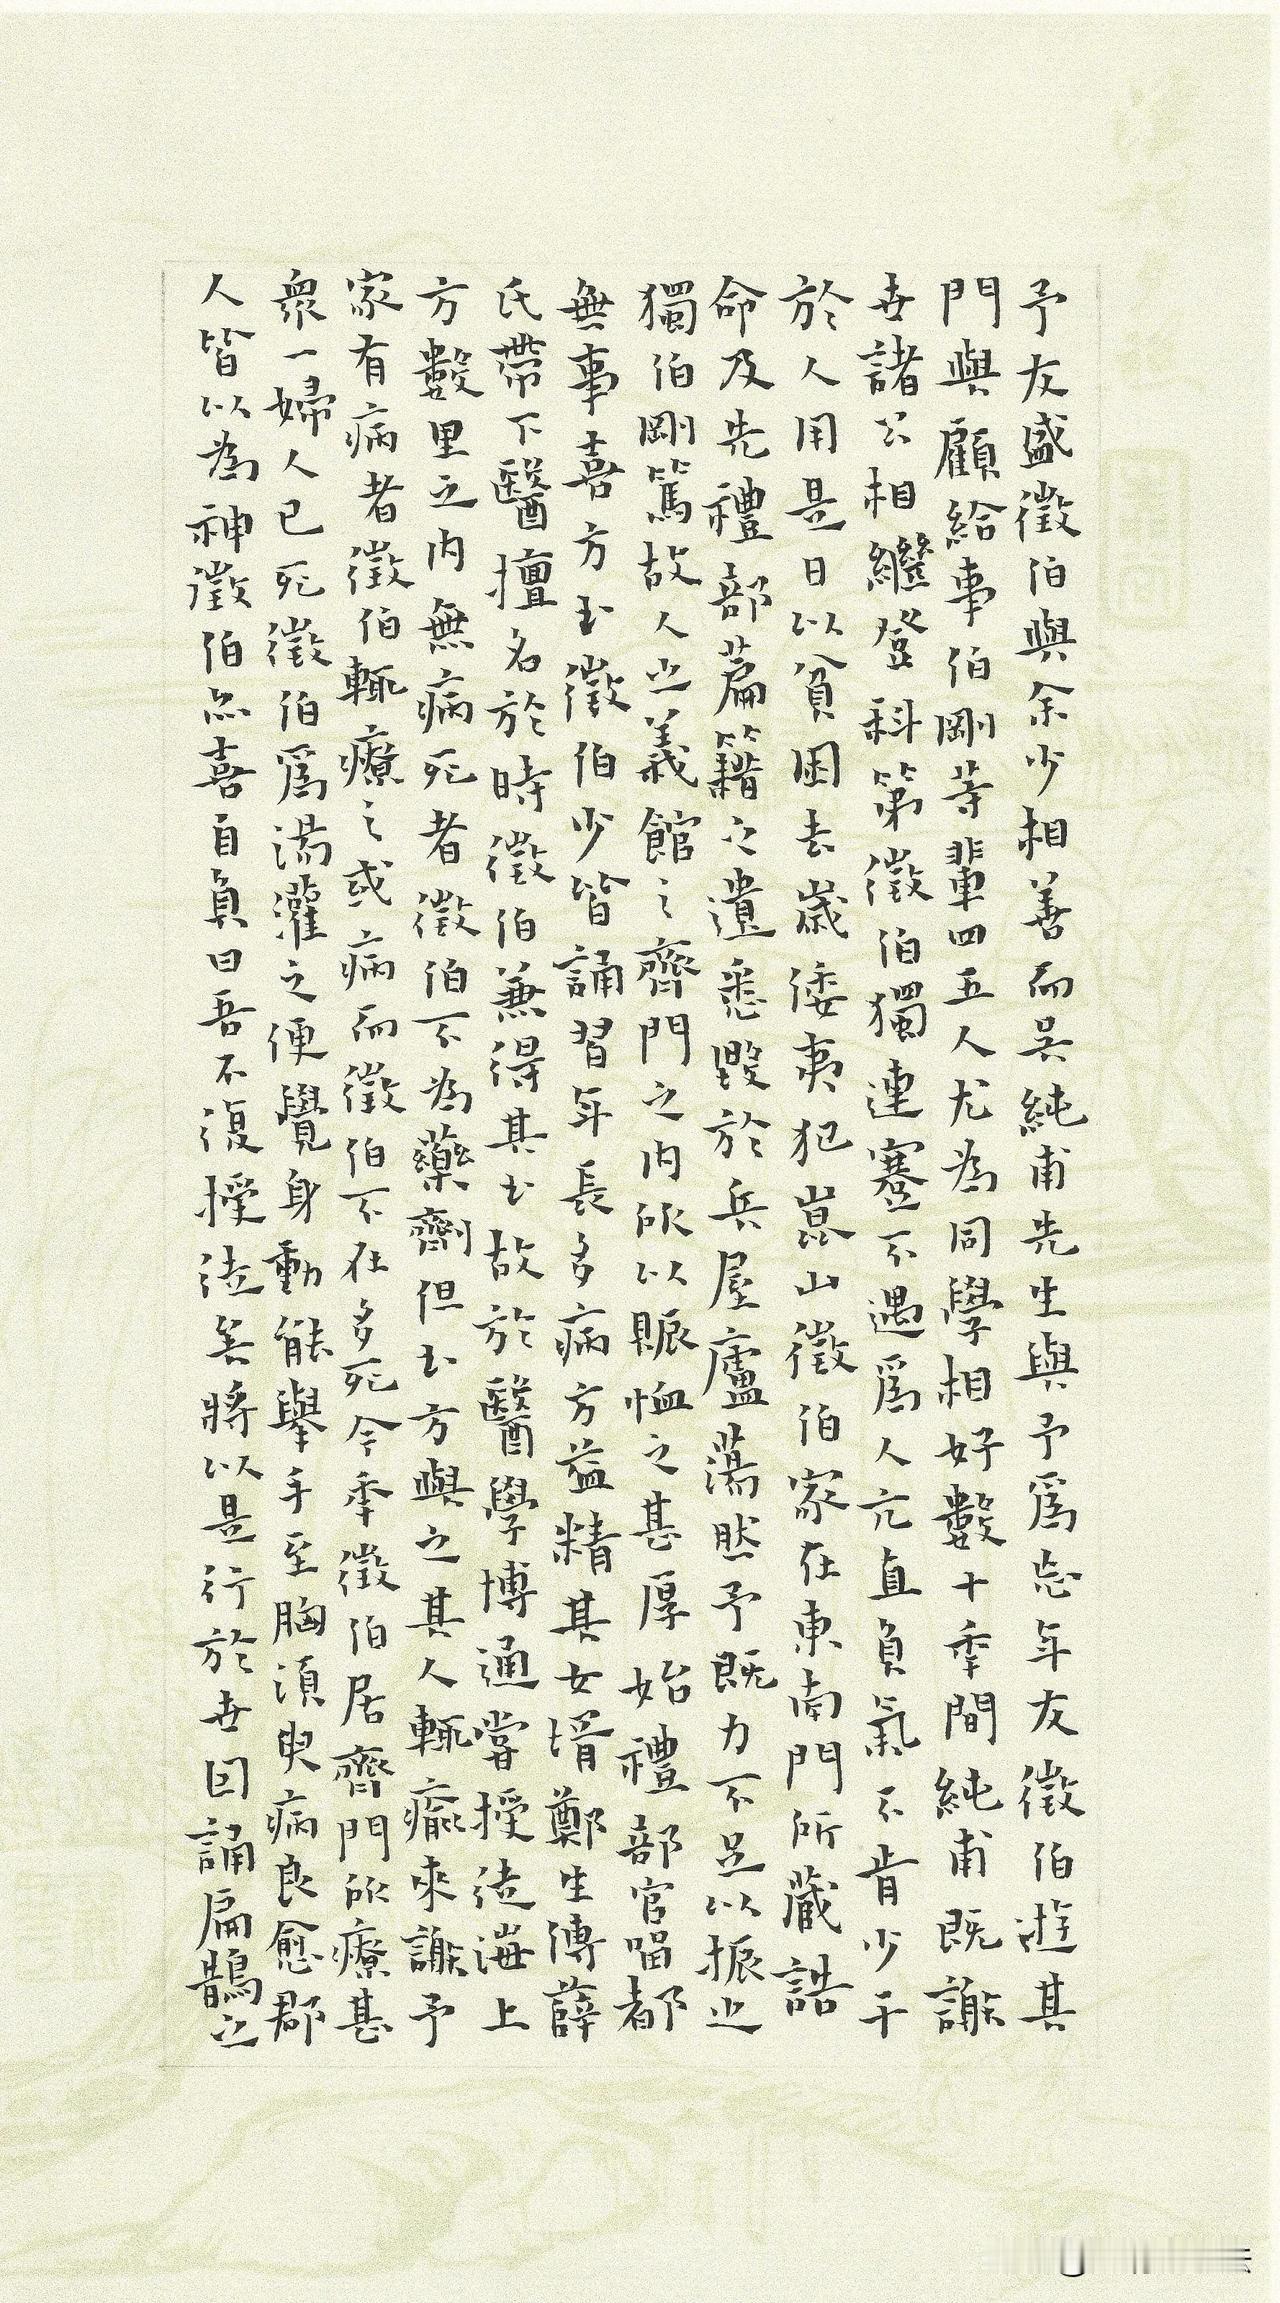 予友盛徵伯與余少相善而吳純甫先生與予為忘年友徵伯遊其
門與顧給事伯剛等輩四五人尤為同學相好數十季間純甫既謝
世諸公相繼登科第徵伯獨連蹇不遇為人亢直負氣不肯少干
於人用是日以貧困去歲倭夷犯崑山徵伯家在東南門所藏誥
命及先禮部篇籍之遺悉毀於兵屋廬蕩然予既力不足以振之
獨伯剛篤故人之義館之齊門之內所以賑恤之甚厚始禮部官留都
無事喜方書徵伯少皆誦習年長多病方益精其女壻鄭生傳薛
氏帶下醫擅名於時徵伯兼得其書故於醫學博通嘗授徒海上
方數里之內無病死者徵伯不為藥劑但書方與之其人輒瘉來謝予
家有病者徵伯輒療之或病而徵伯不在多死今季徵伯居齊門所療甚
衆一婦人已死徵伯為湯灌之便覺身動能舉手至胸須臾病良愈郡
人皆以為神徵伯亦喜自負曰吾不復授徒矣將以是行於世因誦扁鵲之